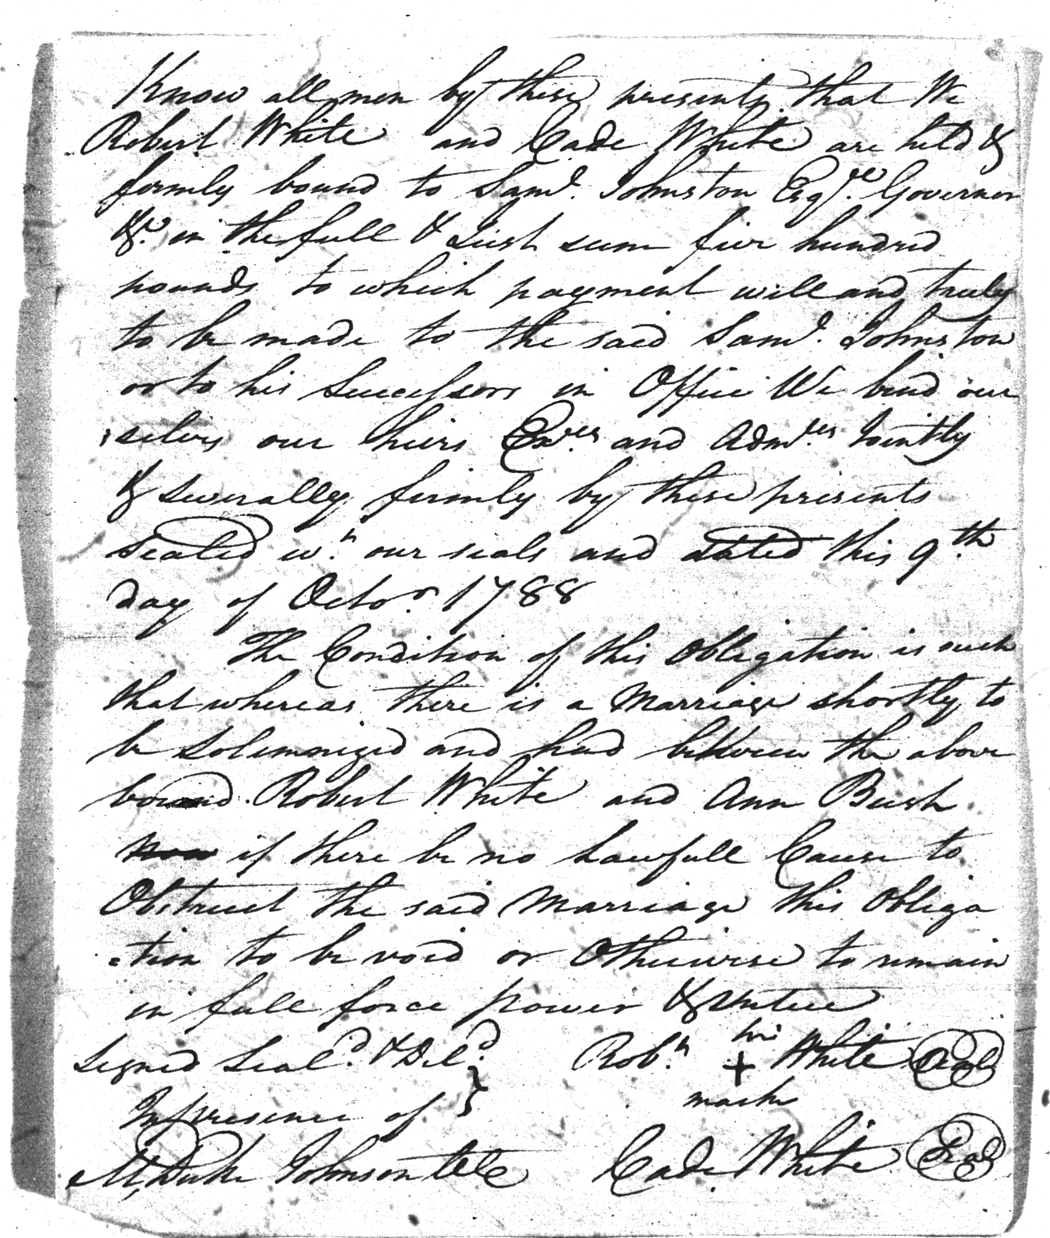 Know all men by these presents that We
Robert White and Cade White are held &
firmly bound to Saml. Johnston Esqr. Governor
&c. in the full & Just sum five hundred
pounds to which payment will and truly
to be made to the said Saml. Johnston
or to his Successors in Office We bind our
selves our heirs Exrs. and Admrs. Jointly
& severally firmly by these presents
sealed wh. our seals and dated this 9th
day of Octor. 1788
The Condition of this Obligation is such
that whereas there is a Marriage shortly to
be Solemnized and had between the above
bound Robert White and Ann Bush
Now if there be no Lawfull Cause to
Obstruct the said Marriage this Obliga
tion to be void or Otherwise to remain
in full force power & Virtue
Signed Seald. & Deld. Robt. his + White Seal
In presence of mark
Cade White Seal
Johnson